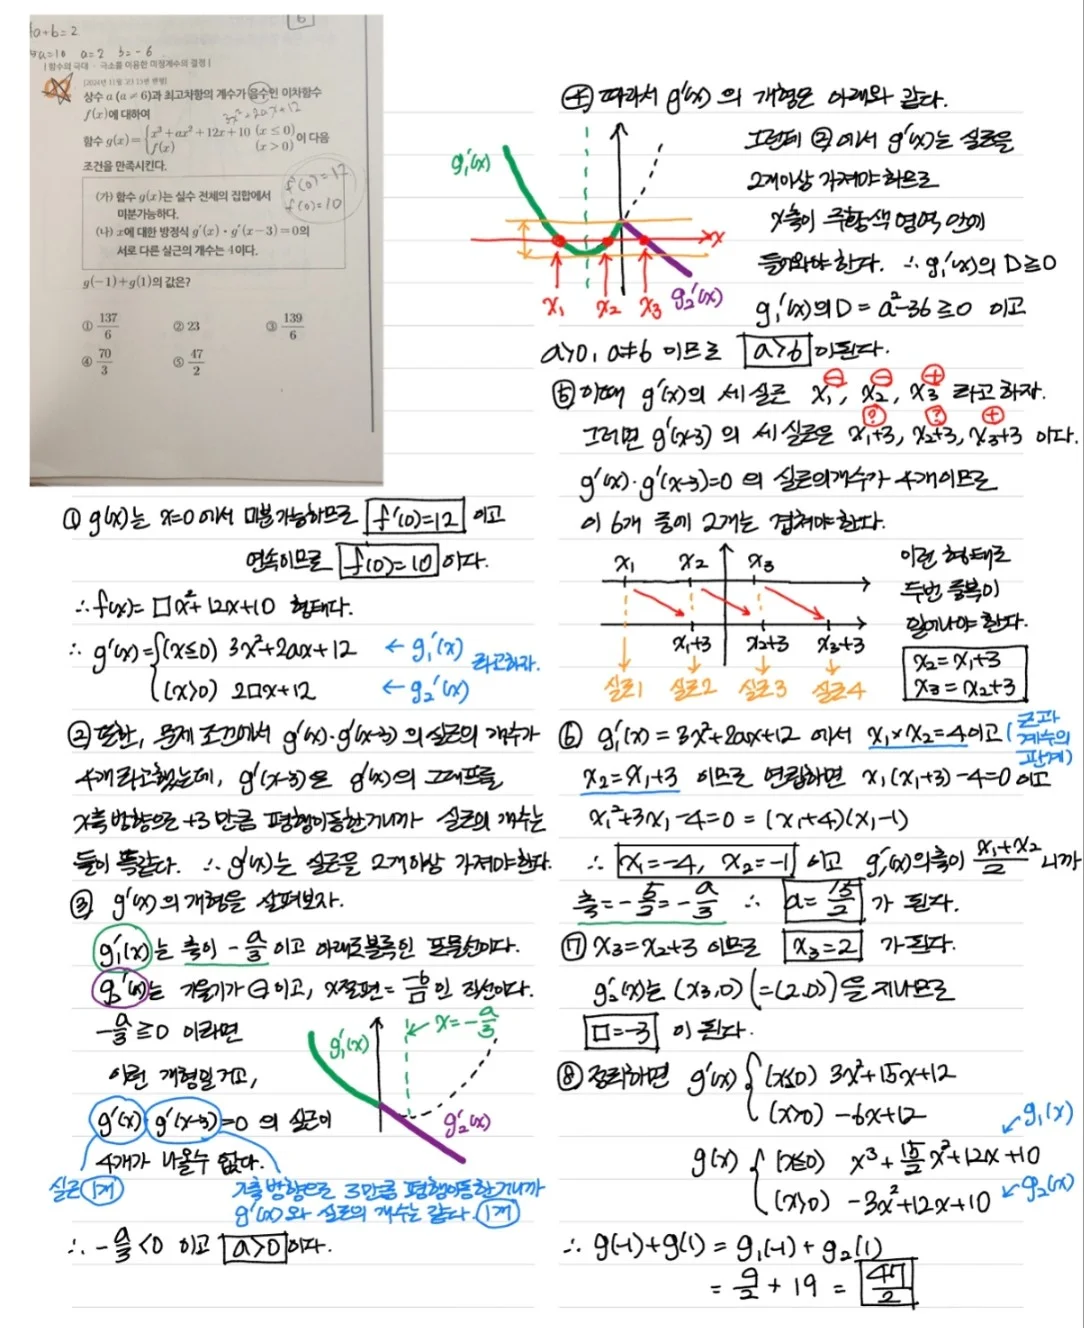 a+b=2
a=10 a=2 b=-6
| 함수의 극대 · 극소를 이용한 미정계수의 결정 |
[2024년 11월 고3 13번 변형]
상수 a (a ≠ 6)과 최고차항의 계수가 음수인 이차함수
f(x)에 대하여
3x²+2ax+12
함수 g(x)={x³+ax²+12x+10 (x≤0) 이 다음
f(x) (x>0)
조건을 만족시킨다.
f'(0)=12
f(0)=10
(가) 함수 g(x)는 실수 전체의 집합에서
미분가능하다.
(나) x에 대한 방정식 g'(x)·g'(x-3)=0의
서로 다른 실근의 개수는 4이다.
g(-1)+g(1)의 값은?
① 137/6 ② 23 ③ 139/6
④ 70/3 ⑤ 47/2
① g(x)는 x=0에서 미분가능하므로 f'(0)=12 이고
연속이므로 f(0)=10 이다.
∴ f(x)= □x²+12x+10 형태다.
∴ g'(x)={(x≤0) 3x²+2ax+12 ← g₁'(x) 라고하자.
(x>0) 2□x+12 ← g₂'(x)
② 또한, 문제 조건에서 g'(x)·g'(x-3)의 실근의 갯수가
4개라고했는데, g'(x-3)은 g'(x)의 그래프를
x축 방향으로 +3만큼 평행이동한거니까 실근의 갯수는
둘이 똑같다. ∴ g'(x)는 실근을 2개이상 가져야한다.
③ g'(x)의 개형을 살펴보자.
g₁'(x)는 축이 -a/3 이고 아래로볼록인 포물선이다.
g₂'(x)는 기울기가 ⊖이고, x절편= -6/□ 인 직선이다.
-a/3 ≥0 이라면
이런 개형일거고,
g'(x) g'(x-3)=0 의 실근이
4개가 나올수 없다.
g₁'(x)
x=-a/3
g₂'(x)
실근 1개
x축방향으로 3만큼 평행이동한거니까
g'(x)와 실근의 개수는 같다. 1개
∴ -a/3 <0 이고 a>0 이다.
④ 따라서 g'(x)의 개형은 아래와 같다.
g₁'(x)
x
x₁ x₂ x₃ g₂'(x)
그런데 ②에서 g'(x)는 실근을
2개이상 가져야하므로
x축이 주황색 영역 안에
들어와야 한다. ∴ g₁'(x)의 D≥0
g₁'(x)의 D = a²-36 ≥0 이고
a>0, a≠6 이므로 a>6 이된다.
⑤ 이때 g'(x)의 세 실근 x₁, x₂, x₃ 라고하자.
⊖ ⊖ ⊕
그러면 g'(x-3)의 세 실근은 x₁+3, x₂+3, x₃+3 이다.
? ? ⊕
g'(x)·g'(x-3)=0 의 실근의개수가 4개이므로
이 6개 중에 2개는 겹쳐야한다.
x₁ x₂ x₃
x₁+3 x₂+3 x₃+3
실근1 실근2 실근3 실근4
이런 형태로
두번 중복이
일어나야 한다.
x₂=x₁+3
x₃=x₂+3
⑥ g₁'(x)=3x²+2ax+12 에서 x₁×x₂=4이고 (근과 계수의 관계)
x₂=x₁+3 이므로 연립하면 x₁(x₁+3)-4=0 이고
x₁²+3x₁-4=0=(x₁+4)(x₁-1)
∴ x₁=-4, x₂=-1 이고 g₁'(x)의축이 x₁+x₂/2 니까
축=-5/2=-a/3 ∴ a=15/2 가 된다.
⑦ x₃=x₂+3 이므로 x₃=2 가 된다.
g₂'(x)는 (x₃,0) (=(2,0))을 지나므로
□=-3 이 된다.
⑧ 정리하면 g'(x) {(x≤0) 3x²+15x+12
(x>0) -6x+12
g₁(x)
g(x) {(x≤0) x³+15/2x²+12x+10
(x>0) -3x²+12x+10
g₂(x)
∴ g(-1)+g(1) = g₁(-1)+g₂(1)
= 9/2 + 19 = 47/2